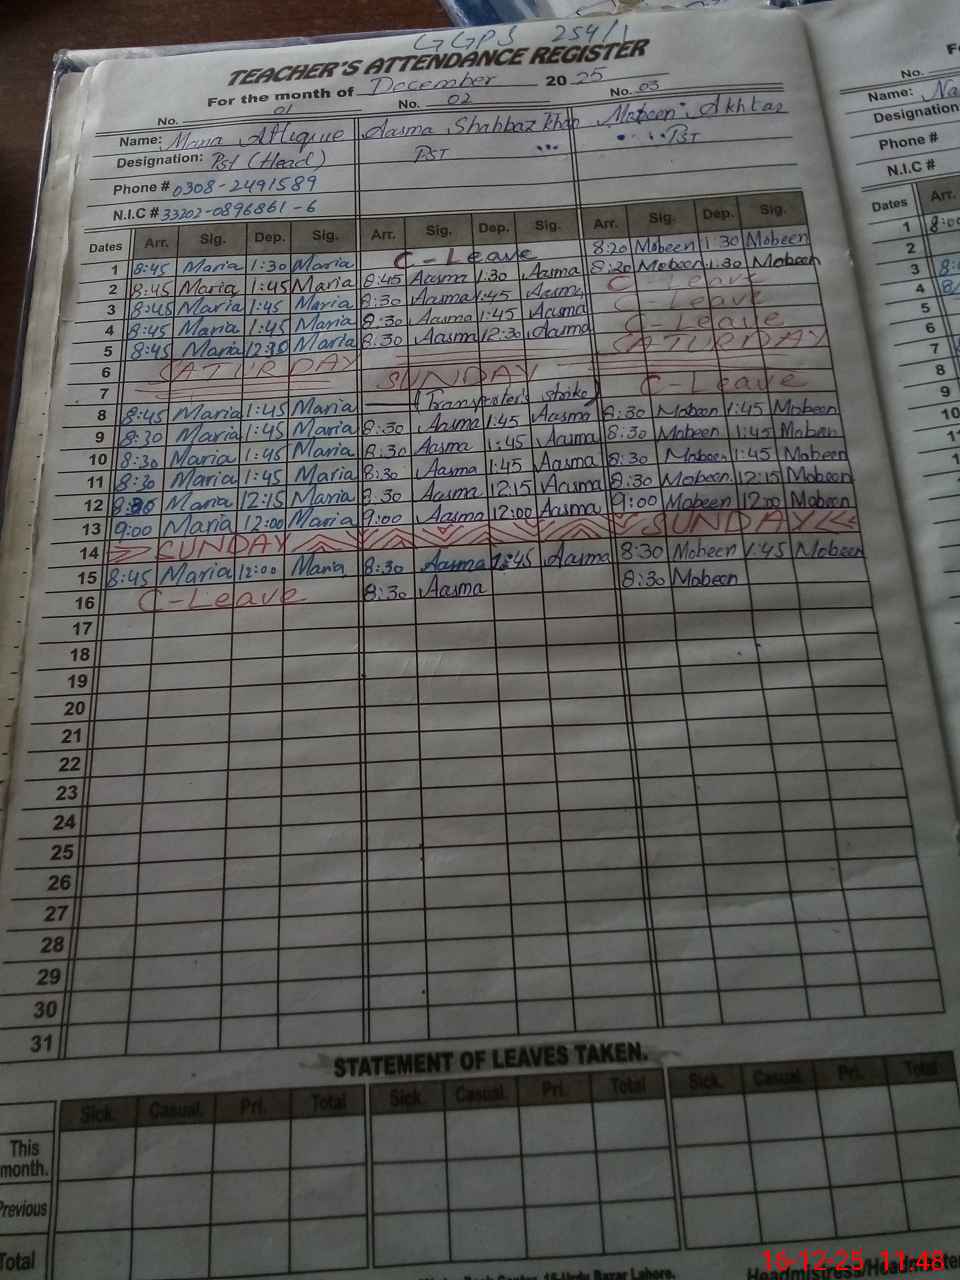 GGPS 254/1
TEACHER'S ATTENDANCE REGISTER
For the month of December 2025
No. 01 No. 02 No. 03
Name: Maria Attique Aasma Shahbaz khan Mobeen Akhtar
Designation: Pst (Head) PST PST
Phone # 0308-2491589
N.I.C # 33202-0896861-6
Dates Arr. Sig. Dep. Sig. Arr. Sig. Dep. Sig. Arr. Sig. Dep. Sig.
1 8:45 Maria 1:30 Maria C-Leave 8:20 Mobeen 1:30 Mobeen
2 8:45 Maria 1:45 Maria 8:45 Aasma 1:30 Aasma 8:30 Mobeen 1:30 Mobeen
3 8:45 Maria 1:45 Maria 8:30 Aasma 1:45 Aasma C-Leave
4 8:45 Maria 1:45 Maria 8:30 Aasma 1:45 Aasma C-Leave
5 8:45 Maria 12:30 Maria 8:30 Aasma 12:30 Aasma C-Leave
6 SATURDAY SATURDAY
7 SUNDAY
8 8:45 Maria 1:45 Maria (Transporter's strike) C-Leave
9 8:30 Maria 1:45 Maria 8:30 Aasma 1:45 Aasma 8:30 Mobeen 1:45 Mobeen
10 8:30 Maria 1:45 Maria 8:30 Aasma 1:45 Aasma 8:30 Mobeen 1:45 Mobeen
11 8:30 Maria 1:45 Maria 8:30 Aasma 1:45 Aasma 8:30 Mobeen 1:45 Mobeen
12 8:30 Maria 12:15 Maria 8:30 Aasma 12:15 Aasma 8:30 Mobeen 12:15 Mobeen
13 9:00 Maria 12:00 Maria 9:00 Aasma 12:00 Aasma 9:00 Mobeen 12:00 Mobeen
14 SUNDAY SUNDAY
15 8:45 Maria 12:00 Maria 8:30 Aasma 1:45 Aasma 8:30 Mobeen 1:45 Mobeen
16 C-Leave 8:30 Aasma 8:30 Mobeen
17
18
19
20
21
22
23
24
25
26
27
28
29
30
31
STATEMENT OF LEAVES TAKEN.
Sick. Casual. Pri. Total Sick. Casual. Pri. Total Sick. Casual. Pri. Total
This
month.
Previous
Total
Urdu Bazar Lahore.
Headmistress/Headmaster
No.
Name: Na
Designation
Phone #
N.I.C #
Dates Arr.
1 8:00
2
3 8:
4 8/
5
6
7
8
9
10
16-12-25 11:48